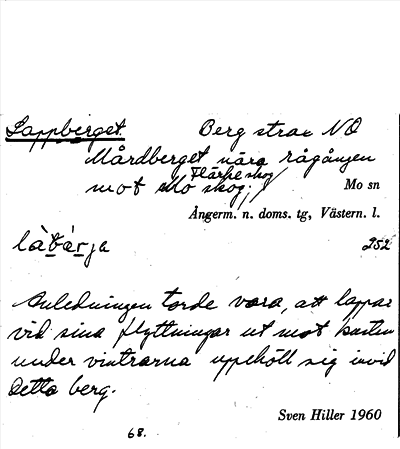 Lappberget. Berg strax NO
Mårdberget nära rågången
Flärke skog
mot Mo skog.
Mo sn
Ångerm. n. doms. tg, Västern. l.
252
Anledningen torde vara, att lappar
vid sina flyttningar ut mot kusten
under vintrarna uppehöll sig invid
detta berg.
Sven Hiller 1960
68.